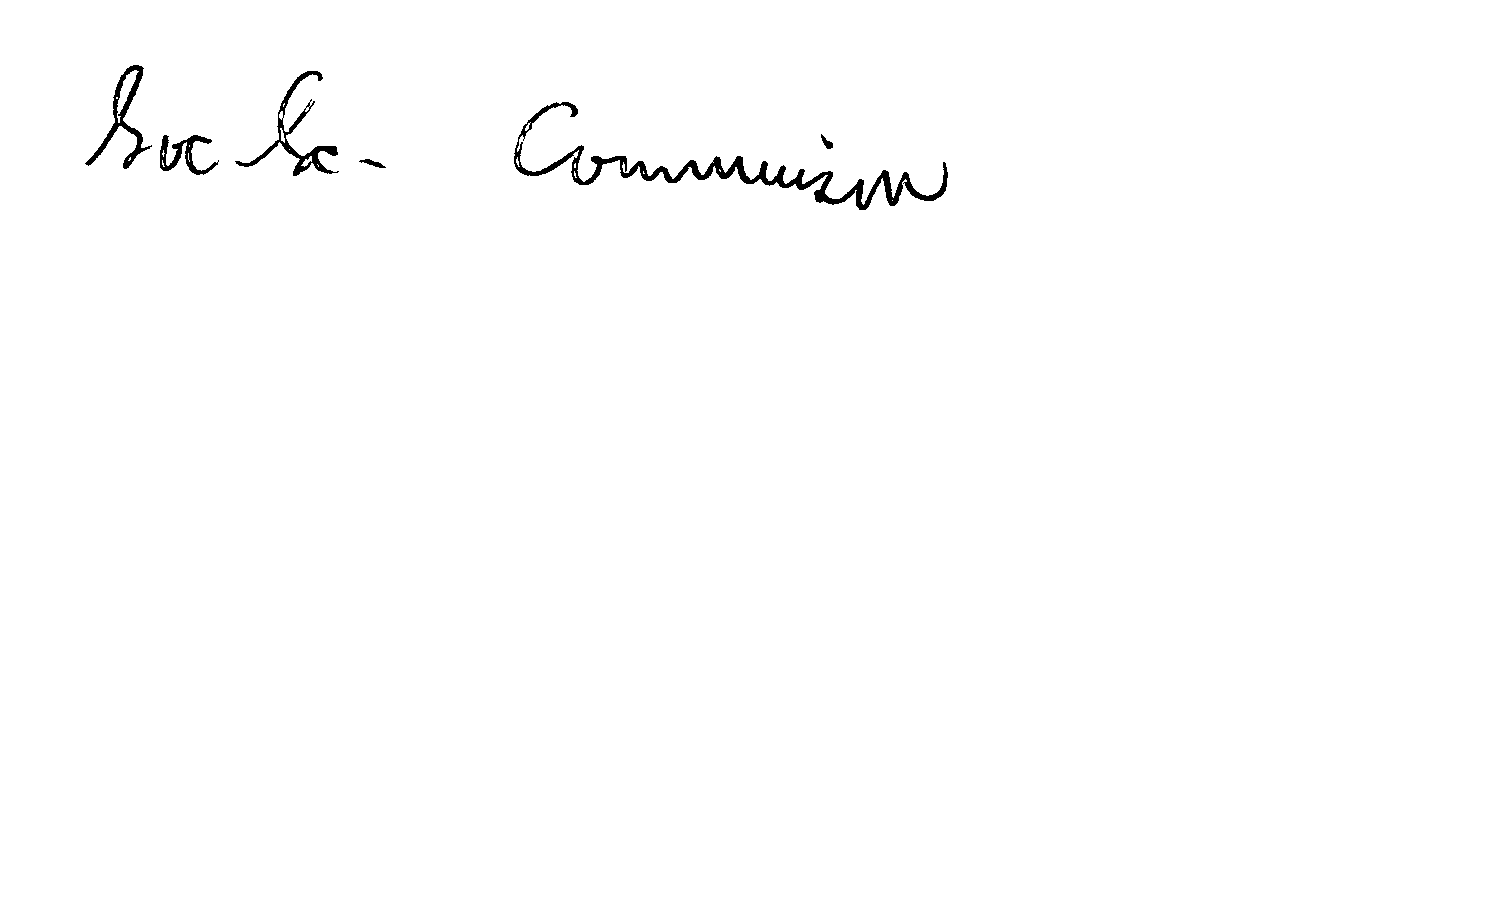 Soc Sc - Communism